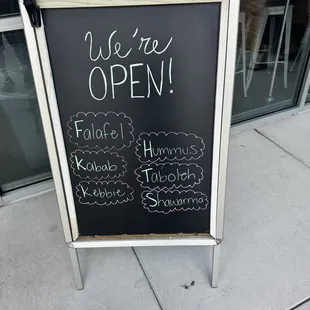 We're
OPEN!
Falafel
Kabab
Kebbie
Hummus
Taboleh
Shawarma